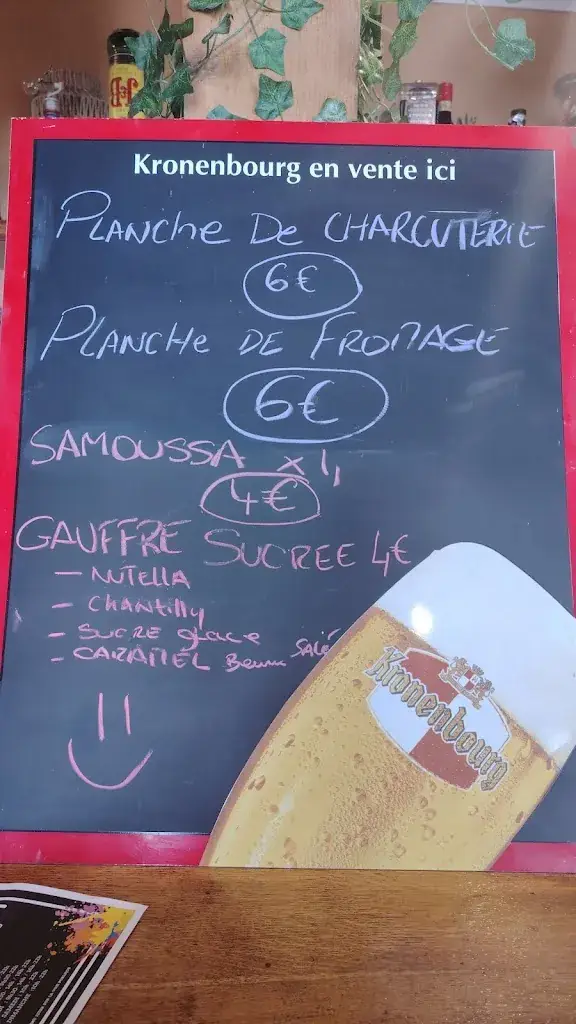 J&B
Kronenbourg en vente ici
PLANCHE DE CHARCUTERIE
6€
PLANCHE DE FROMAGE
6€
SAMOUSSA
4€
GAUFFRE SUCREE 4€
- NUTELLA
- CHANtilly
- SUCRE glace
- CARAMEL Beurre SALÉ
Kronenbourg